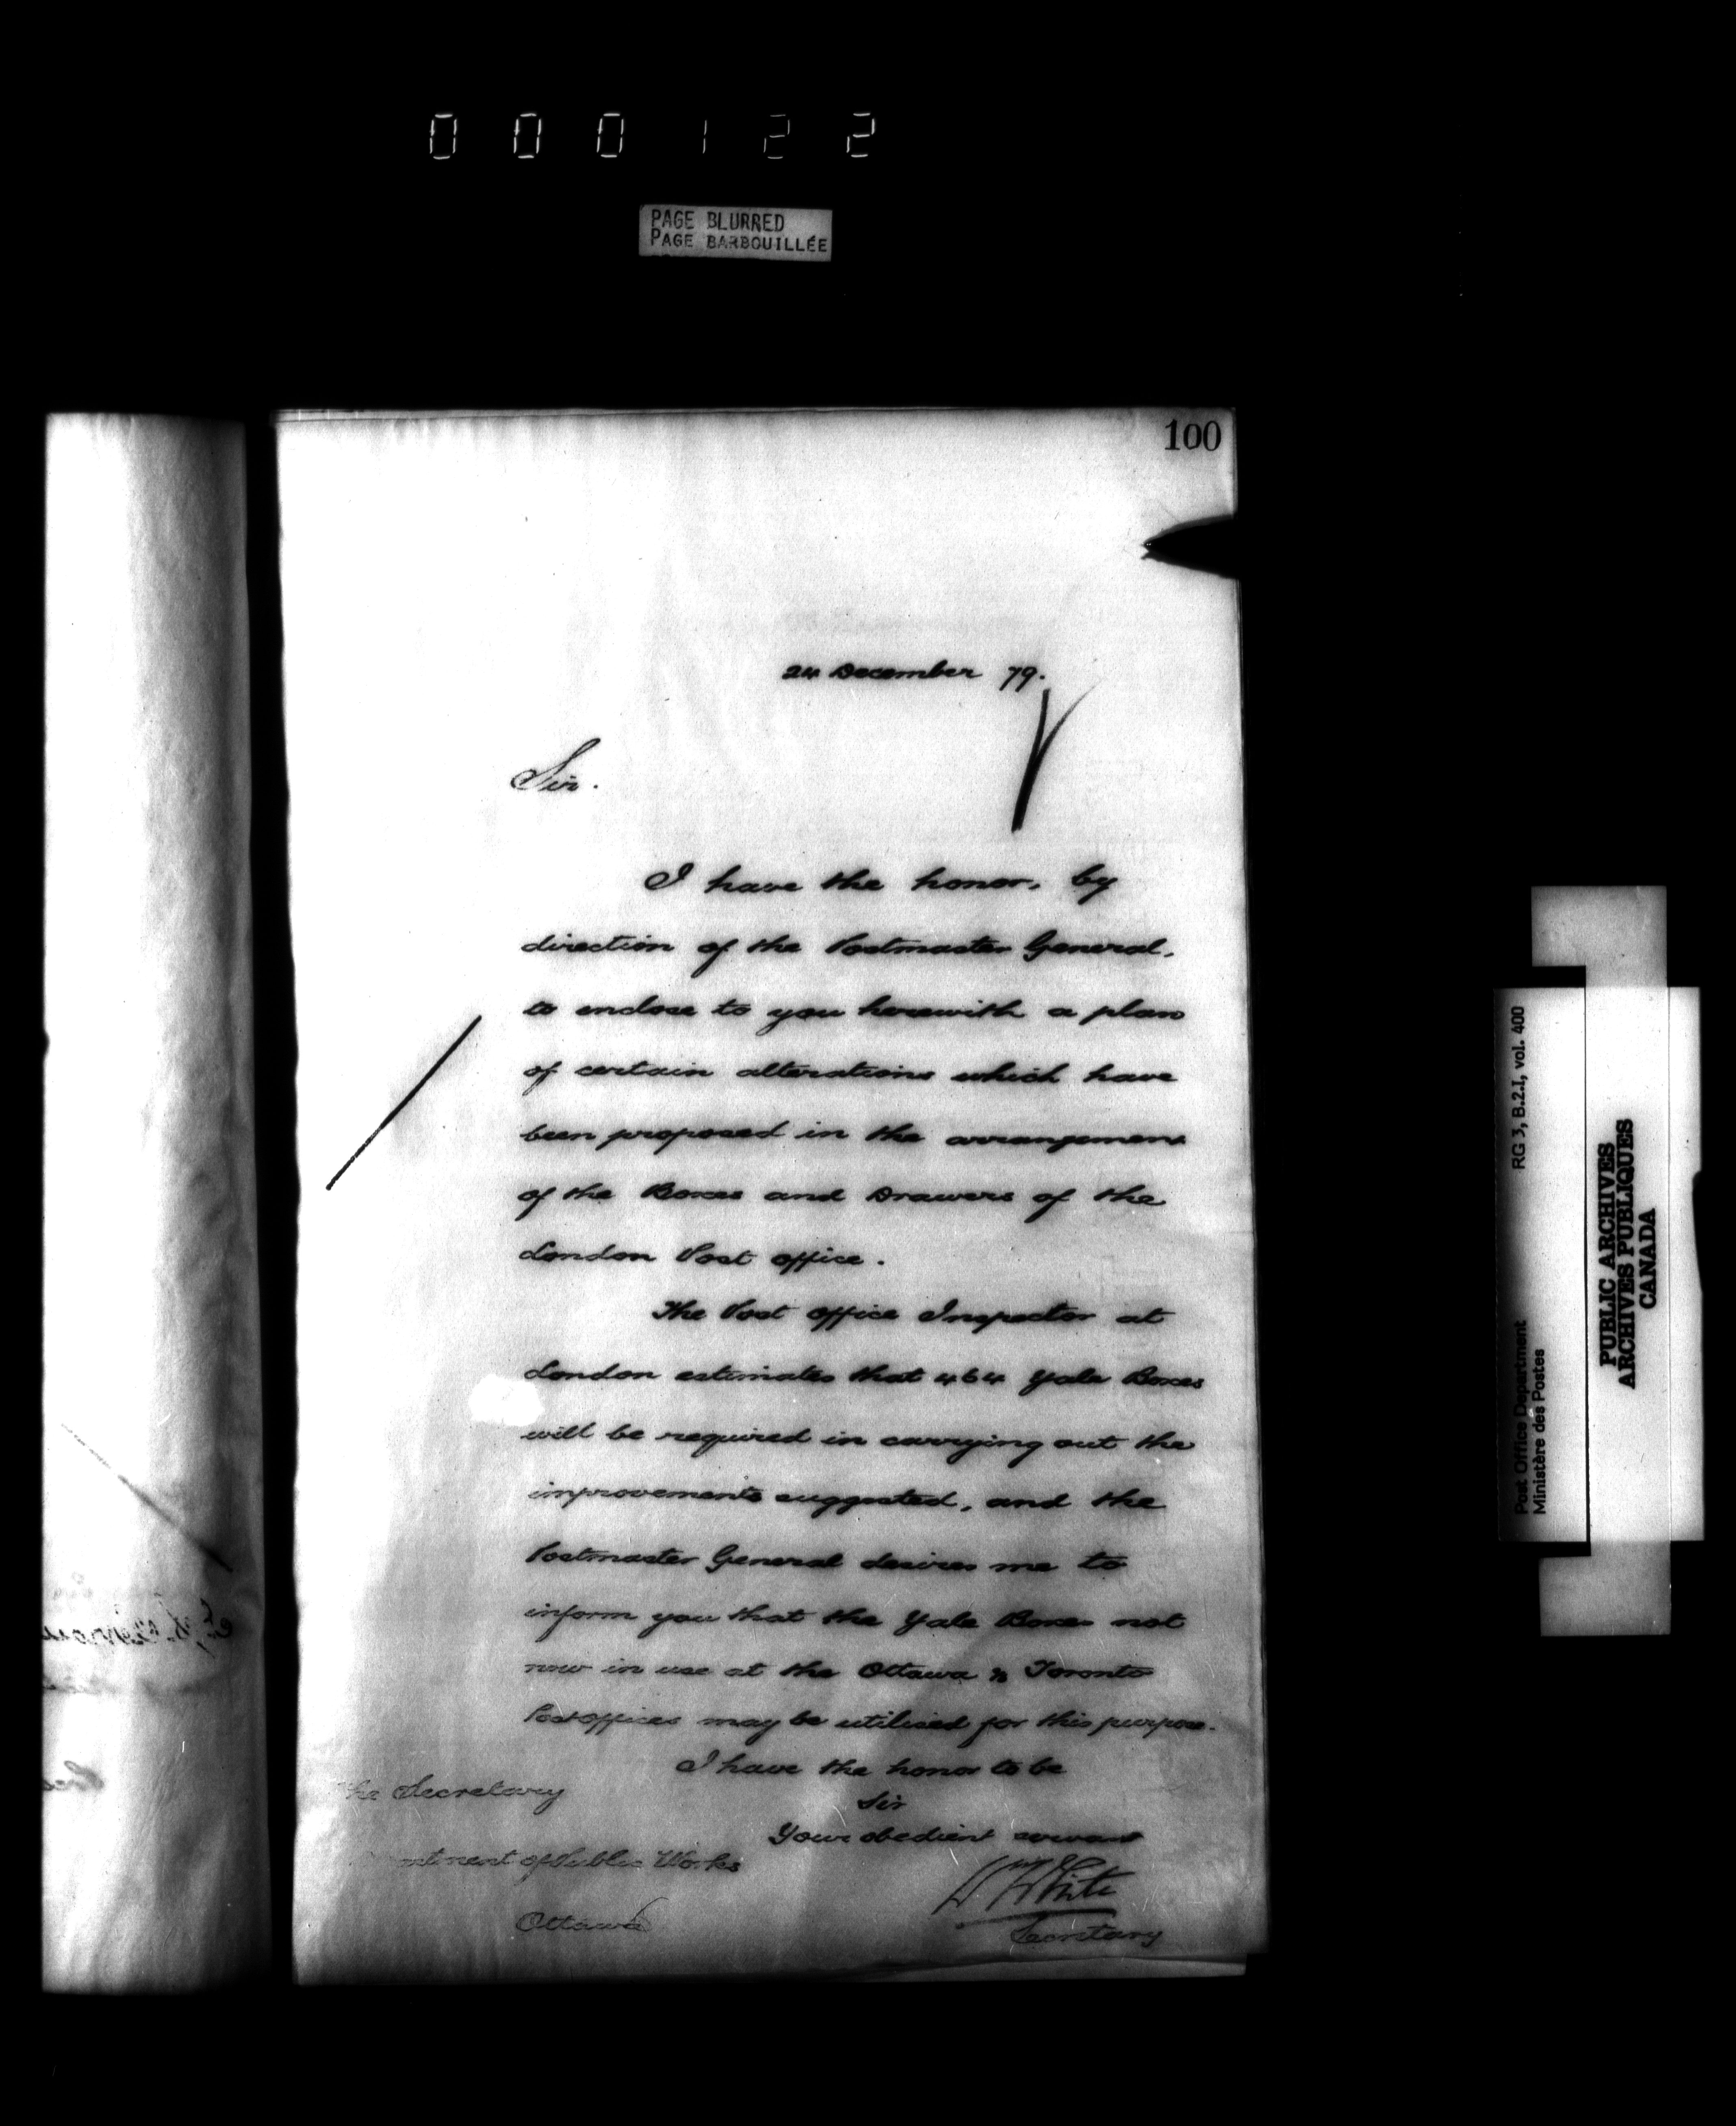 000122
PAGE BLURRED
PAGE BARBOUILLÉE
100
24 December 79.
Sir.
I have the honor, by
direction of the Postmaster General,
to enclose to you herewith a plan
of certain alterations which have
been proposed in the arrangement
of the Boxes and Drawers of the
London Post Office.
The Post Office Inspector at
London estimates that 464 Yale Boxes
will be required in carrying out the
improvements suggested, and the
Postmaster General desires me to
inform you that the Yale Boxes not
now in use at the Ottawa & Toronto
Post Offices may be utilised for this purpose.
I have the honor to be
Sir
Your obedient servant
Wm White
Secretary
The Secretary
of Public Works
Ottawa
Post Office Department RG 3, B.2.I, vol. 400
Ministère des Postes
PUBLIC ARCHIVES
ARCHIVES PUBLIQUES
CANADA